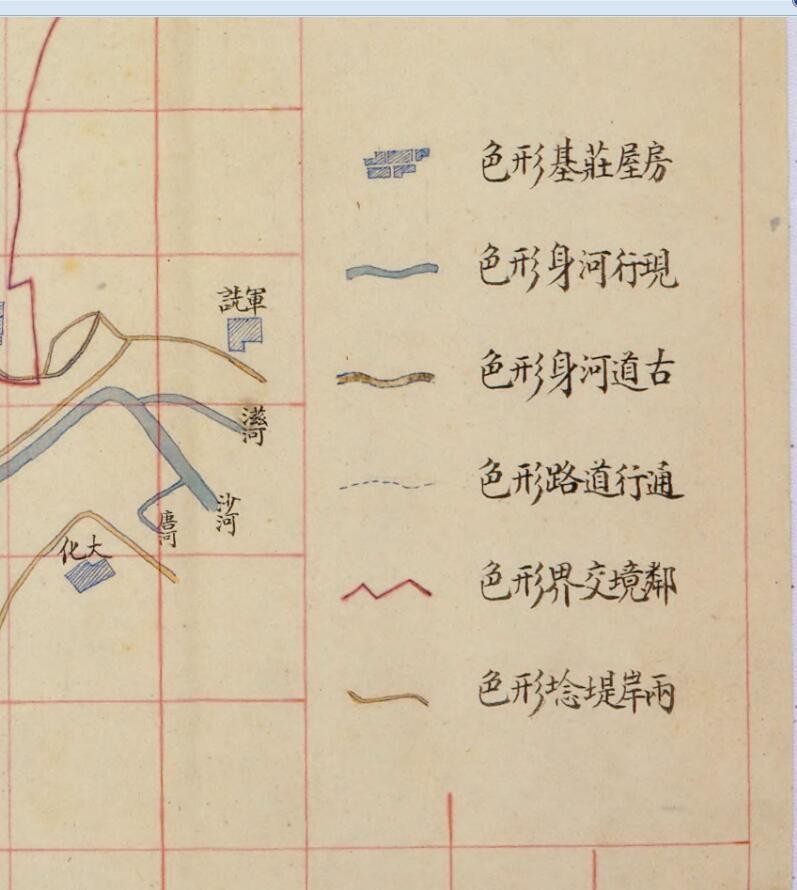 房屋莊基形色
現行河身形色
古道河身形色
通行道路形色
鄰境交界形色
兩岸堤埝形色
軍詵
滋河
沙河
唐河
大化